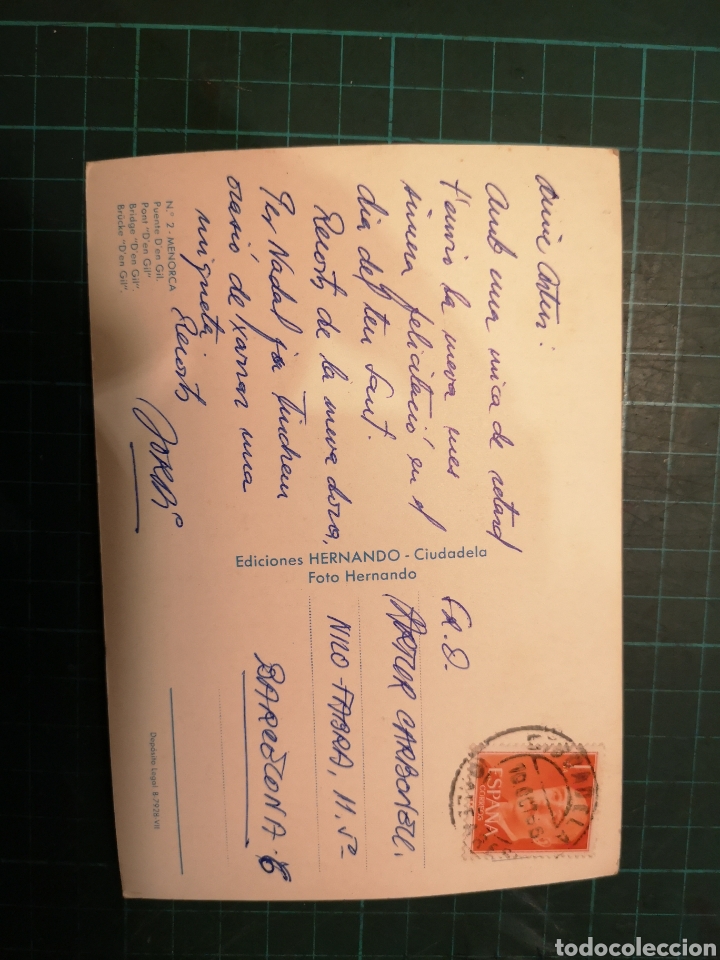 Amic Artur:
Amb una mica de retard
t'envio la meva mes
sincera felicitació en el
dia del teu Sant.
Records de la meva dona,
Per Nadal ja tindrem
ocasió de xarrar una
miqueta.
Records
JORDI
N.º 2 - MENORCA
Puente D'en Gil.
Pont "D'en Gil".
Bridge "D'en Gil".
Brücke "D'en Gil".
Ediciones HERNANDO - Ciudadela
Foto Hernando
SR. D.
ARTUR CARBONELL.
NILO-FABRA, 11. 5º
BARCELONA-6
Depósito Legal B-7928-VII
ESPAÑA
CORREOS
todocoleccion
todocoleccion.net